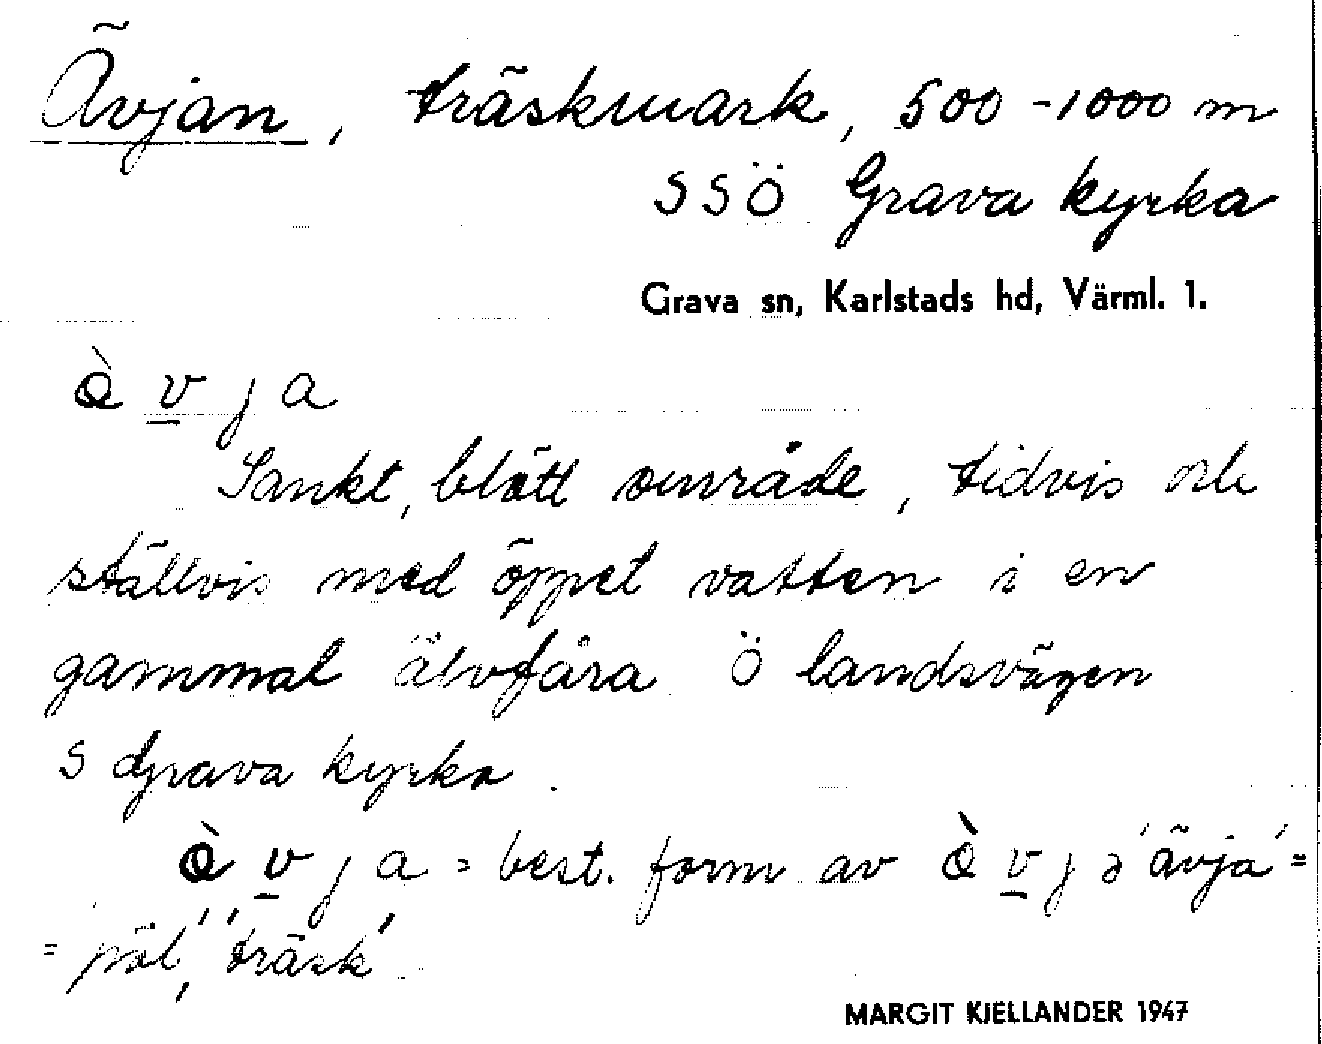 Ävjan, träskmark, 500-1000 m
SSÖ Grava kyrka
Grava sn, Karlstads hd, Värml. 1.
v j a
Sankt, blött område, tidvis och
ställvis med öppet vatten i en
gammal älvfåra Ö landsvägen
S Grava kyrka.
v j a = best. form av v j ə 'ävja' =
= 'pöl', 'träsk'.
MARGIT KJELLANDER 1947